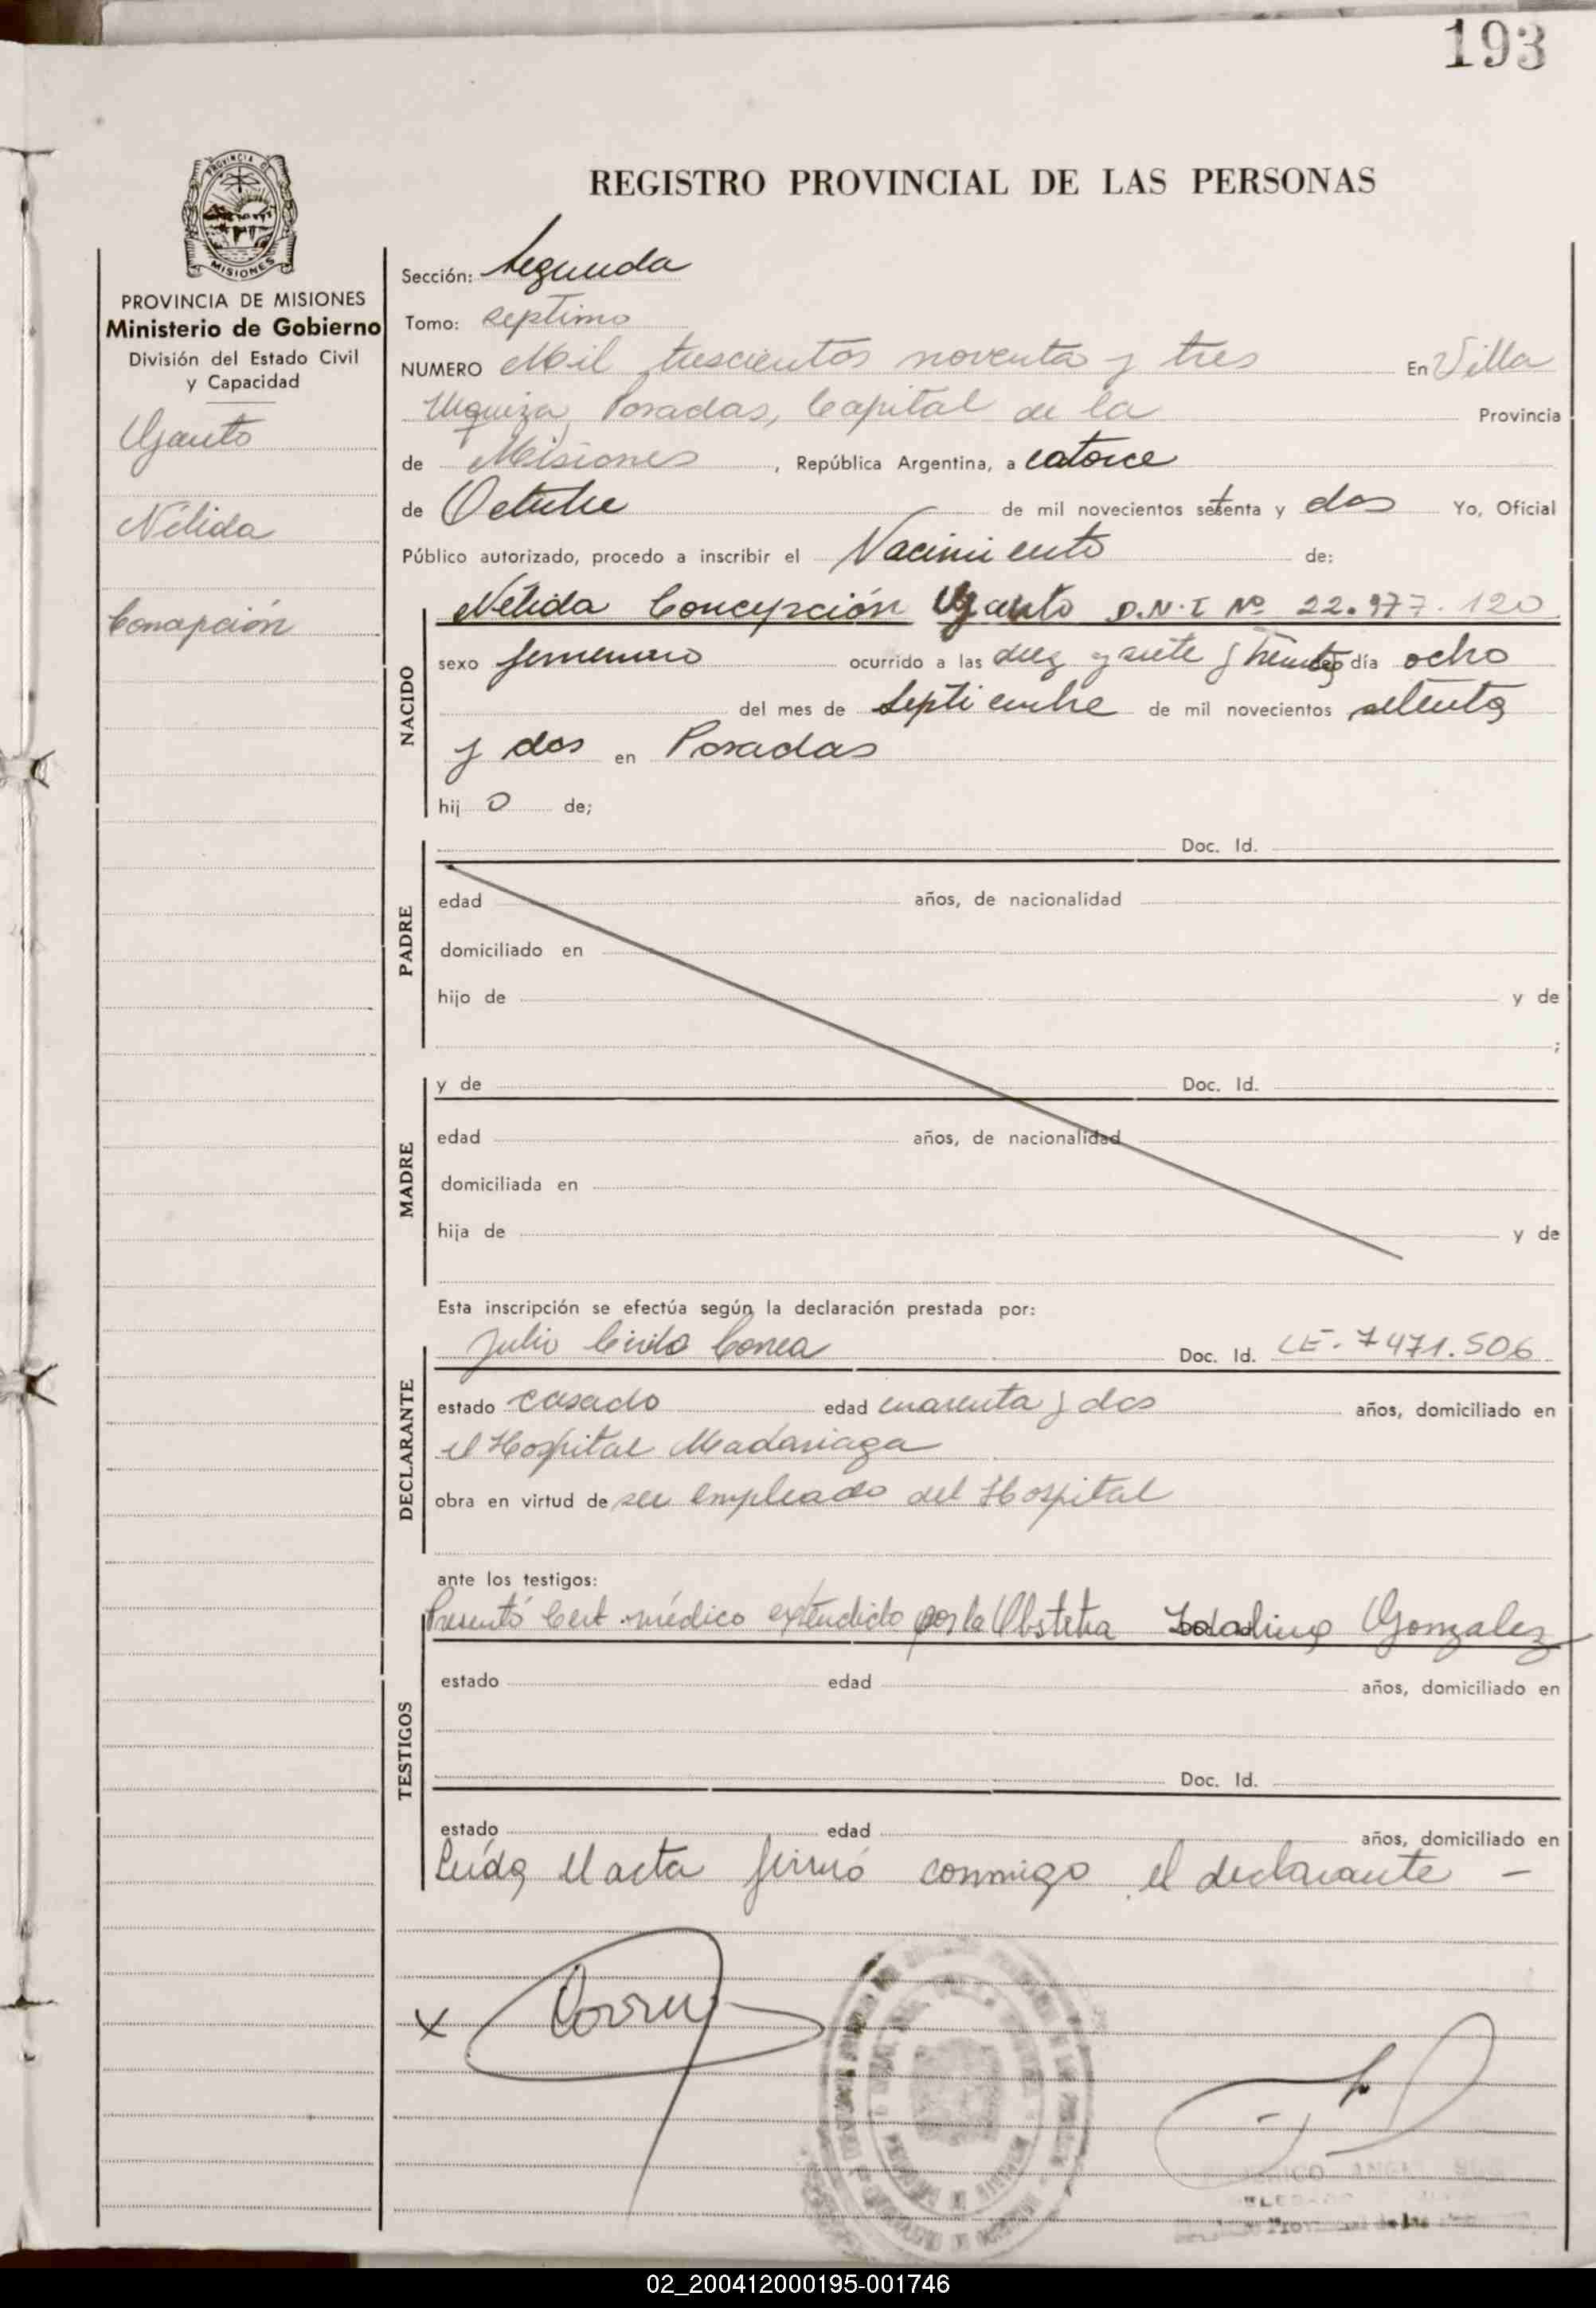 193
REGISTRO PROVINCIAL DE LAS PERSONAS
PROVINCIA DE MISIONES
Ministerio de Gobierno
División del Estado Civil
y Capacidad
Nélida
Concepción
Sección: Segunda
Tomo: septimo
NUMERO Mil trescientos noventa y tres En Villa
Urquiza, Posadas, Capital de la Provincia
de Misiones, República Argentina, a catorce
de Octubre de mil novecientos setenta y dos Yo, Oficial
Público autorizado, procedo a inscribir el Nacimiento de:
NACIDO
Nélida Concepción D.N.I Nº 22.977.120
sexo femenino ocurrido a las diez y siete y treinta día ocho
del mes de Septiembre de mil novecientos setenta
y dos en Posadas
hij o de;
PADRE
Doc. Id.
edad años, de nacionalidad
domiciliado en
hijo de y de
;
MADRE
y de Doc. Id.
edad años, de nacionalidad
domiciliada en
hija de y de
Esta inscripción se efectúa según la declaración prestada por:
DECLARANTE
Julio Correa Doc. Id. LE. 7471.506
estado casado edad cuarenta y dos años, domiciliado en
el Hospital Madariaga
obra en virtud de ser empleado del Hospital
ante los testigos:
TESTIGOS
Presentó Cert. médico extendido por la Obstetra Gonzalez
estado edad años, domiciliado en
Doc. Id.
estado edad años, domiciliado en
Leída el acta firmó conmigo el declarante -
x
02_200412000195-001746